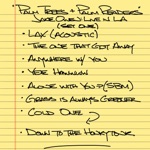 "PALM TREES + PALM READERS"
JAKE OWEN LIVE IN L.A.
(SET ONE)
• LAX (ACOUSTIC)
• THE ONE THAT GOT AWAY
• ANYWHERE W/ YOU
• YEE HAWWW
• ALONE WITH YOU
• GRASS IS ALWAYS GREENER
• COLD ONE
• DOWN TO THE HONKYTONK